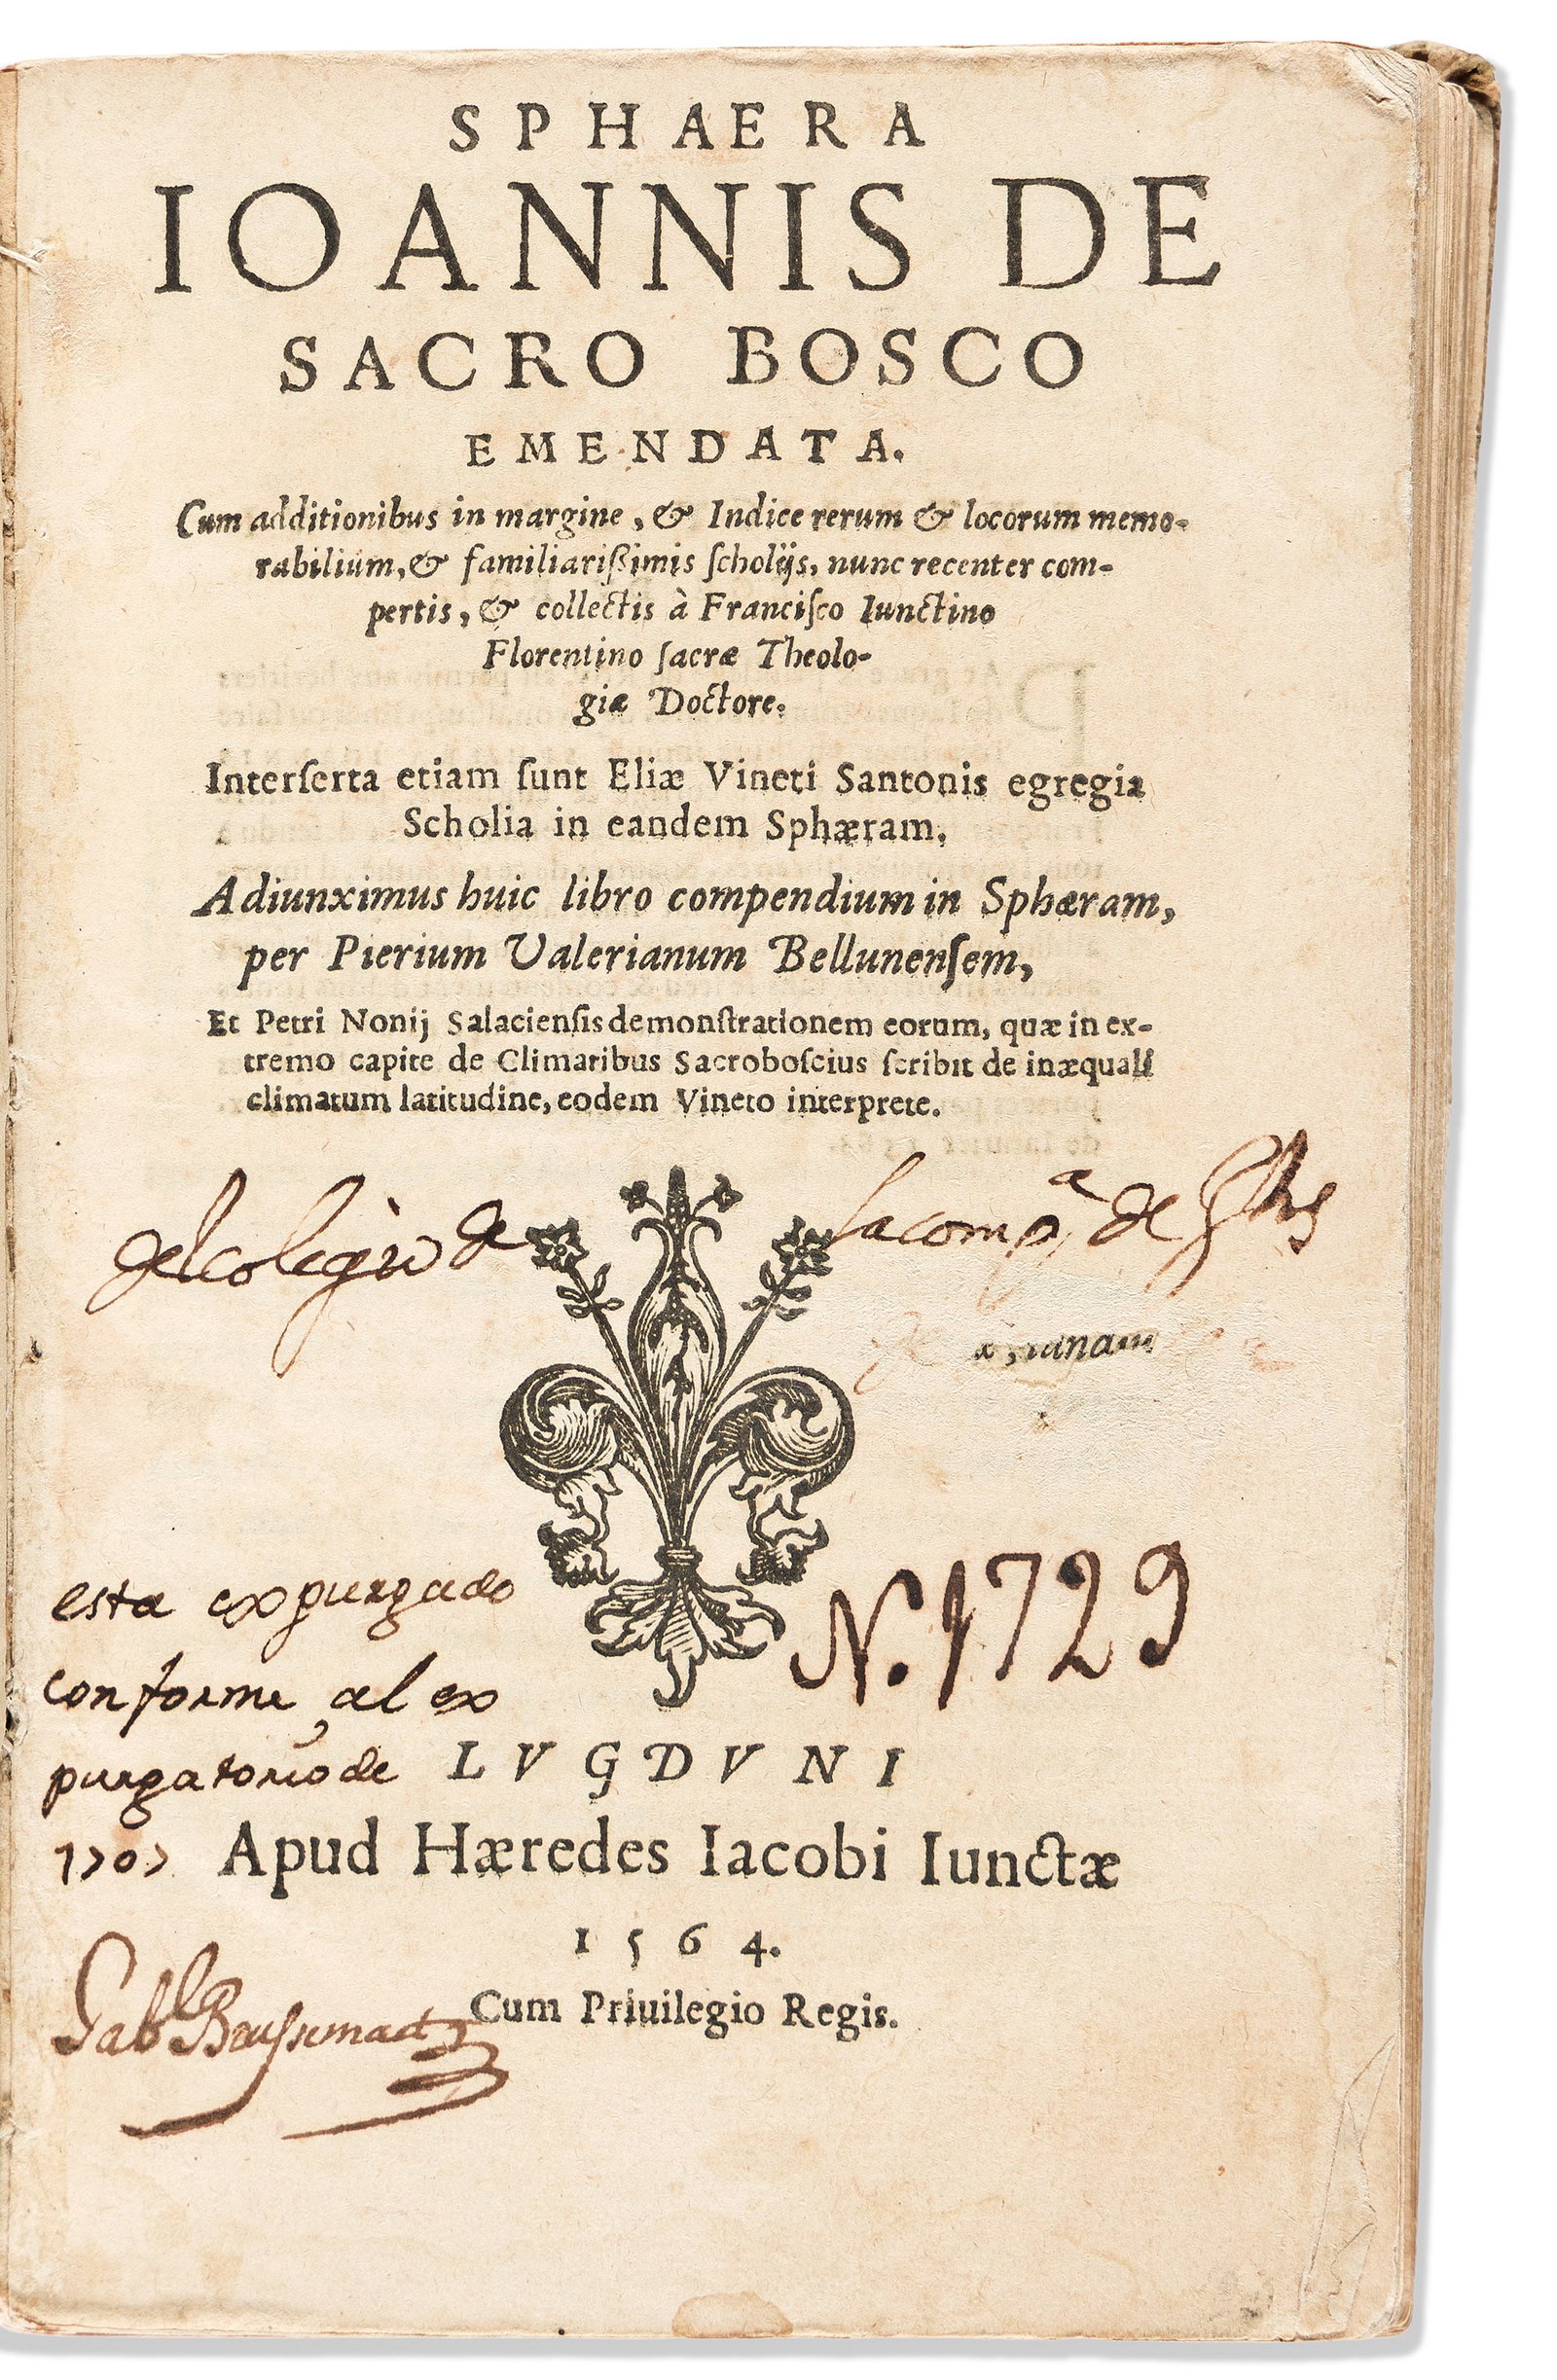 SPHAERA
IOANNIS DE
SACRO BOSCO
EMENDATA.
Cum additionibus in margine, & Indice rerum & locorum memo-
rabilium, & familiarißimis ſcholijs, nunc recenter com-
pertis, & collectis à Franciſco Iunctino
Florentino ſacræ Theolo-
giæ Doctore.
Interſerta etiam ſunt Eliæ Vineti Santonis egregia
Scholia in eandem Sphæram.
Adiunximus huic libro compendium in Sphæram,
per Pierium Valerianum Bellunenſem,
Et Petri Nonij Salacienſis demonſtrationem eorum, quæ in ex-
tremo capite de Climatibus Sacroboſcius ſcribit de inæquali
climatum latitudine, eodem Vineto interprete.
del colegio de la compª de Jhs
N. 1729
esta expurgado
conforme al ex
purgatorio de
1707
LVGDVNI
Apud Hæredes Iacobi Iunctæ
1564.
Cum Priuilegio Regis.
Gabl